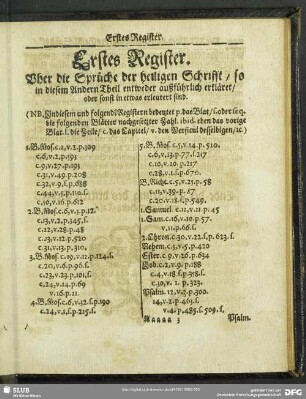 Erstes Register.
Erstes Register.
Vber die Sprüche der heiligen Schrifft / so
in diesem Andern Theil entweder außführlich erkläret /
oder sonst in etwas erleutert sind.
(NB. In diesen und folgend Registern bedeutet p. das Blat / s. oder seq.
die folgenden Blätter nachgesetzter Zahl. ibid. eben das vorige
Blat. l. die Zeile / c. das Capitel / v. den Versicul desselbigen / ꝛc.)
1. B. Mos. c.1, v.2. p.109
c.6, v.2. p.191
c.9, v.2. p.191
c.31, v.49. p.208
c.32, v.9. f. p.638
c.49, v.10. p.612
2. B. Mos. c.6, v.3. p.12
c.13, v.2. p.345. s.
c.22, v.28. p.48
c.23, v.12. p.520
c.31, v.13. p.310.
3. B. Mos. c.10, v.12. p.124. s.
c.20, v.6. p.96. s.
c.23, v.23. p.101. s.
c.24, v.14. p.69
v.16. p.11
4. B. Mos. c.6, v.32. f. p.190
c.24, v.1. s. p.215. s.
5. B. Mos. c.5, v.14. p.510.
c.6, v.13. p.77. s. 217
c.10, v.20. p.217
c.28, v.1. s. p.670.
B. Richt. c.5, v.23. p.58
c.11, v.39. p.27
c.20, v.18. f. p.549.
1. Samuel. c.11, v.11. p.45
1. Sam. c.16, v.10. p.57.
v.11. p.66. s.
2. Chron. c.30, v.22. p.623. s.
Nehem. c.13, v.5. p.420
Ester. c.9, v.26. p.634
Job. c.2, v.9. p.188
c.4, v.18. f. p.318. s.
c.30, v. 1. p.323.
Psalm. 12, v.9. p.300.
14, v.2. p.463. s.
v.4. p.485. s. 509. s.
Aaaaa 3
Psalm.
SLUB
Wir führen Wissen.
DFG